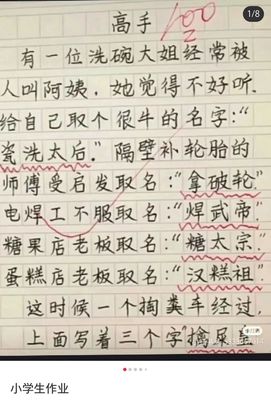 1/8
高手
100
有一位洗碗大姐经常被
人叫阿姨，她觉得不好听.
给自己取个很牛的名字:“
瓷洗太后.”隔壁补轮胎的
师傅受启发取名:“拿破轮”
电焊工不服取名:“焊武帝.”
糖果店老板取名:“糖太宗”
蛋糕店老板取名:“汉糕祖”
这时候一个掏粪车经过,
上面写着三个字“擒屎皇
小学生作业